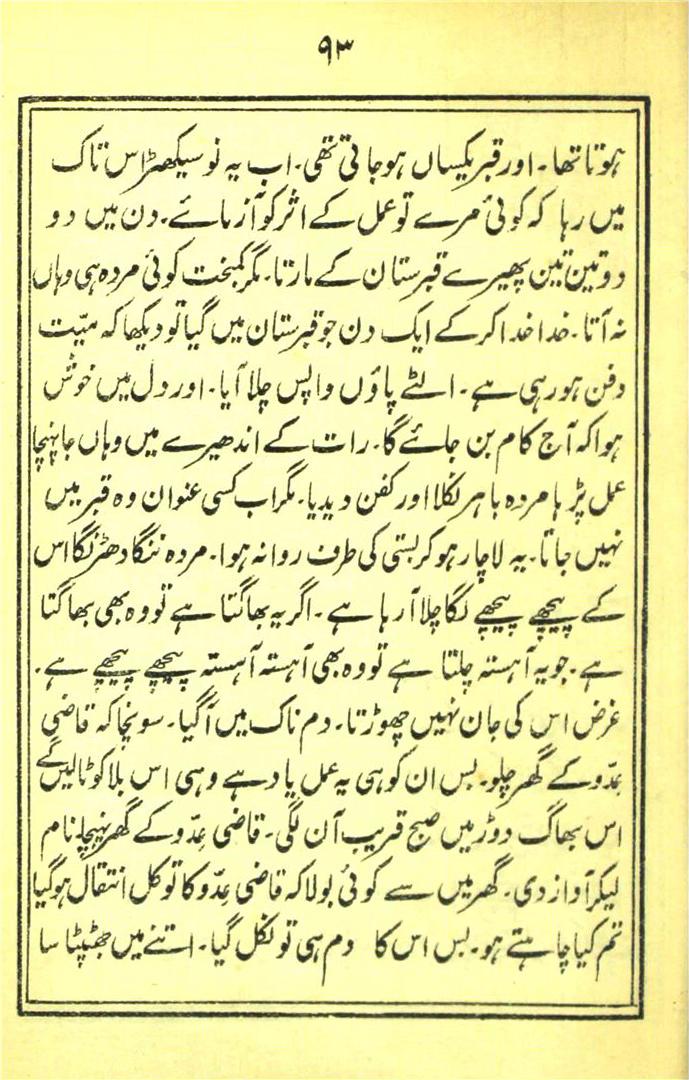 ۹۳
ہوتا تھا۔ اور قبر یکساں ہوجاتی تھی۔ اب یہ نوسیکھڑ اس تاک
میں رہا کہ کوئی مرے تو عمل کے اثر کو آزمائے۔ دن میں دو
دو تین تین پھیرے قبرستان کے مارتا۔ مگر کمبخت کوئی مردہ ہی وہاں
نہ آتا۔ خدا خدا کر کے ایک دن جو قبرستان میں گیا تو دیکھا کہ میّت
دفن ہو رہی ہے۔ الٹے پاؤں واپس چلا آیا۔ اور دل میں خوش
ہوا کہ آج کام بن جائے گا۔ رات کے اندھیرے میں وہاں جا پہنچا
عمل پڑہا مردہ باہر نکلا اور کفن دیدیا۔ مگر اب کسی عنوان وہ قبر میں
نہیں جاتا۔ یہ لاچار ہو کر بستی کی طرف روانہ ہوا۔ مردہ ننگا دھڑنگا اس
کے پیچھے پیچھے لگا چلا آ رہا ہے۔ اگر یہ بھاگتا ہے تو وہ بھی بھاگتا
ہے۔ جو یہ آہستہ چلتا ہے تو وہ بھی آہستہ آہستہ پیچھے پیچھے ہے۔
غرض اس کی جان نہیں چھوڑتا۔ دم ناک میں آگیا۔ سونچا کہ قاضی
عِدّو کے گھر چلو۔ بس ان کو ہی یہ عمل یاد ہے وہی اس بلا کو ٹالیں گے
اس بھاگ دوڑ میں صبح قریب آن لگی۔ قاضی عِدّو کے گھر پہنچا نام
لیکر آواز دی۔ گھر میں سے کوئی بولا کہ قاضی عِدّو کا تو کل انتقال ہوگیا
تم کیا چاہتے ہو۔ بس اس کا دم ہی تو نکل گیا۔ اتنے میں جھٹپٹا سا